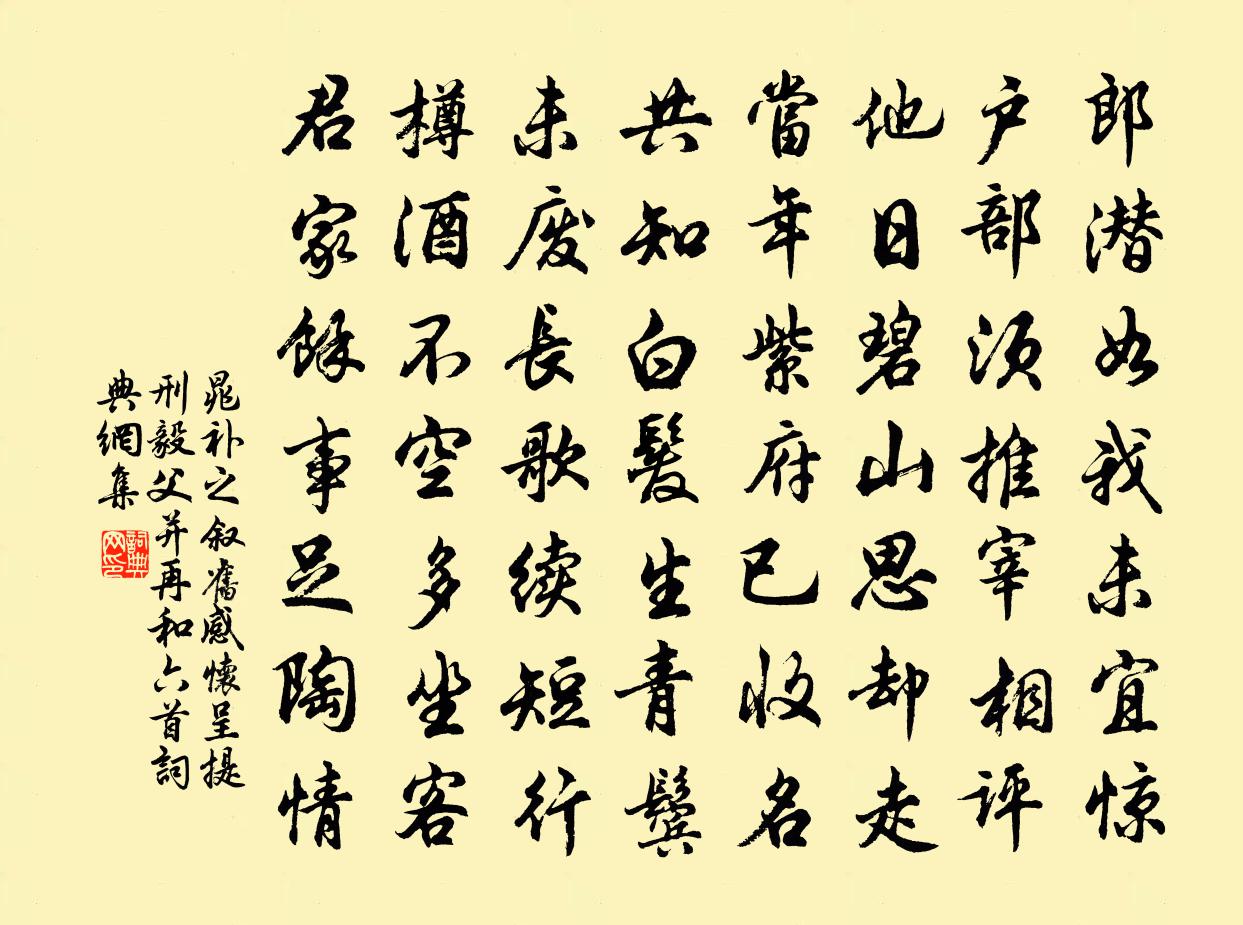 郎潜如我未宜惊
户部须推宰相评
他日碧山思却走
當年紫府已收名
共知白髮生青鬓
未废長歌续短行
樽酒不空多坐客
君家餘事足陶情
晁补之叙舊感懷呈提
刑毅父并再和六首詞
典網集
詞典網印